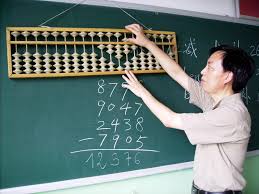 879
9047
2438
-7905
12376
减